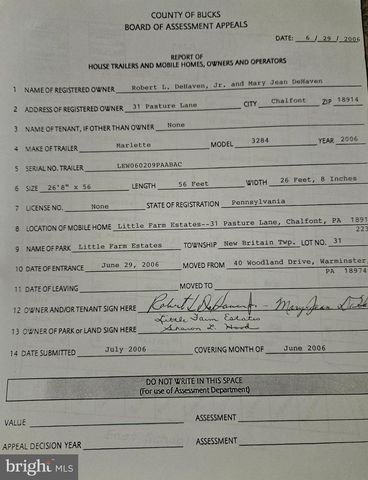 COUNTY OF BUCKS
BOARD OF ASSESSMENT APPEALS
DATE: 6 / 29 / 2006
REPORT OF
HOUSE TRAILERS AND MOBILE HOMES, OWNERS AND OPERATORS
1 NAME OF REGISTERED OWNER Robert L. DeHaven, Jr. and Mary Jean DeHaven
2 ADDRESS OF REGISTERED OWNER 31 Pasture Lane CITY Chalfont ZIP 18914
3 NAME OF TENANT, IF OTHER THAN OWNER None
4 MAKE OF TRAILER Marlette MODEL 3284 YEAR 2006
5 SERIAL NO. TRAILER LEW060209PAABAC
6 SIZE 26'8" x 56 LENGTH 56 Feet WIDTH 26 Feet, 8 Inches
7 LICENSE NO. None STATE OF REGISTRATION Pennsylvania
8 LOCATION OF MOBILE HOME Little Farm Estates--31 Pasture Lane, Chalfont, PA 1891
223
9 NAME OF PARK Little Farm Estates TOWNSHIP New Britain Twp. LOT NO. 31
10 DATE OF ENTRANCE June 29, 2006 MOVED FROM 40 Woodland Drive, Warminster,
PA 18974
11 DATE OF LEAVING MOVED TO
12 OWNER AND/OR TENANT SIGN HERE Robert L DeHaven Jr. - Mary Jean
Little Farm Estates
13 OWNER OF PARK or LAND SIGN HERE Sharon L. Hood
14 DATE SUBMITTED July 2006 COVERING MONTH OF June 2006
DO NOT WRITE IN THIS SPACE
(For use of Assessment Department)
VALUE ASSESSMENT
APPEAL DECISION YEAR ASSESSMENT
bright MLS